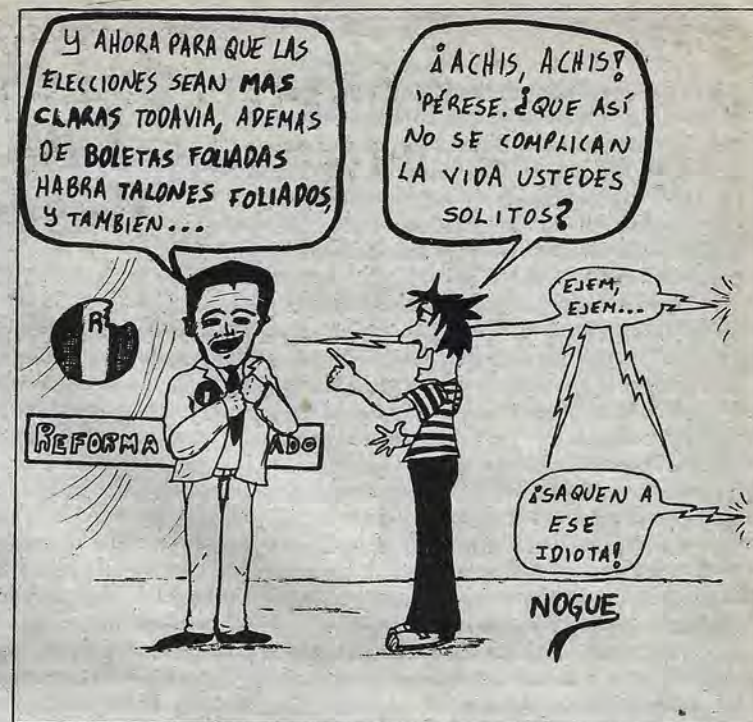 Y AHORA PARA QUE LAS
ELECCIONES SEAN MAS
CLARAS TODAVIA, ADEMAS
DE BOLETAS FOLIADAS
HABRA TALONES FOLIADOS,
Y TAMBIEN...
¡ACHIS, ACHIS!
'PÉRESE. ¿QUE ASÍ
NO SE COMPLICAN
LA VIDA USTEDES
SOLITOS?
EJEM,
EJEM...
R
REFORMA ADO
¡SAQUEN A
ESE
IDIOTA!
NOGUE